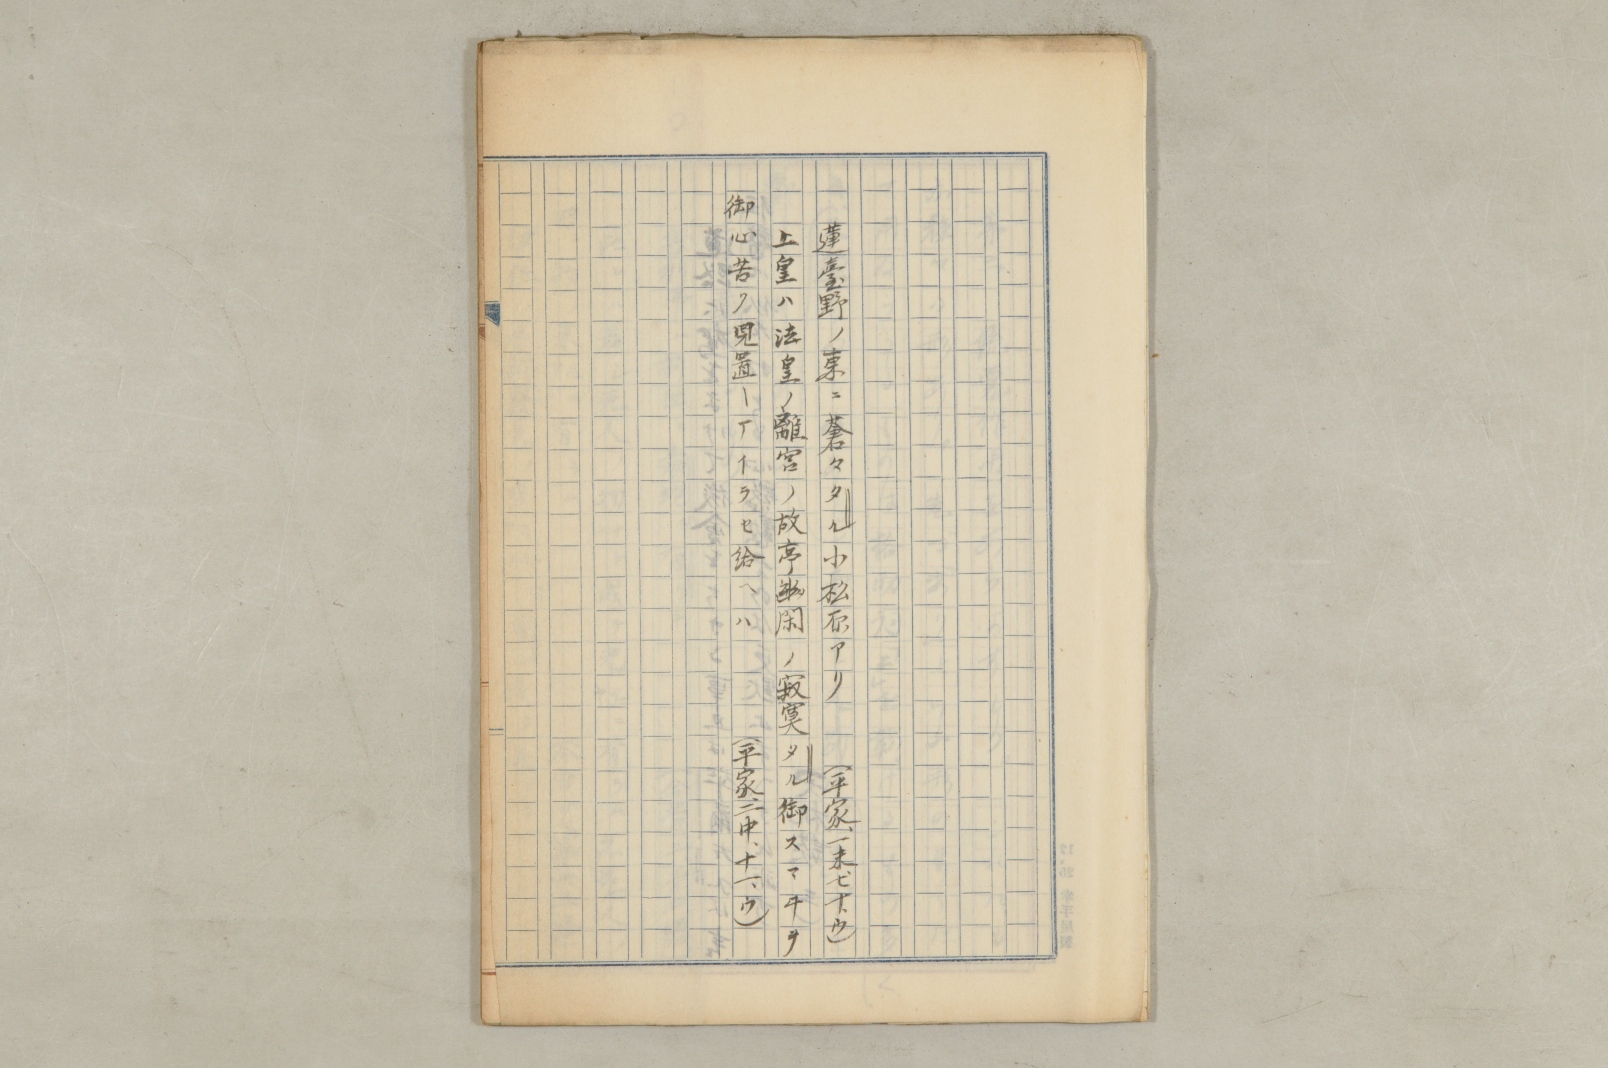 蓮臺野ノ東ニ蒼々タル小松原アリ (平家、一末、七十、ウ)
上皇ハ法皇ノ離宮ノ故亭幽閑ノ寂寞タル御スマヰヲ
御心苦ク見置マイラセ給ヘハ (平家、二中、十一、ウ)